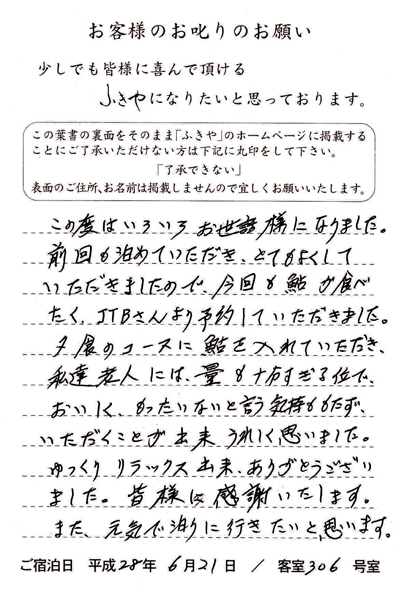 お客様のお叱りのお願い
少しでも皆様に喜んで頂ける
ふきやになりたいと思っております。
この葉書の裏面をそのまま「ふきや」のホームページに掲載する
ことにご了承いただけない方は下記に丸印をして下さい。
「了承できない」
表面のご住所、お名前は掲載しませんので宜しくお願いいたします。
この度はいろいろお世話様になりました。
前回も泊めていただき、とてもよくして
いただきましたので、今回も鮎が食べ
たく、JTBさんより予約していただきました。
夕食のコースに鮎を入れていただき、
私達老人には、量も十分すぎる位で、
おいしく、もったいないと言う気持ももたず、
いただくことが出来うれしく思いました。
ゆっくりリラックス出来、ありがとうござい
ました。皆様に感謝いたします。
また、元気で泊りに行きたいと思います。
ご宿泊日 平成28年 6月21日 / 客室306号室